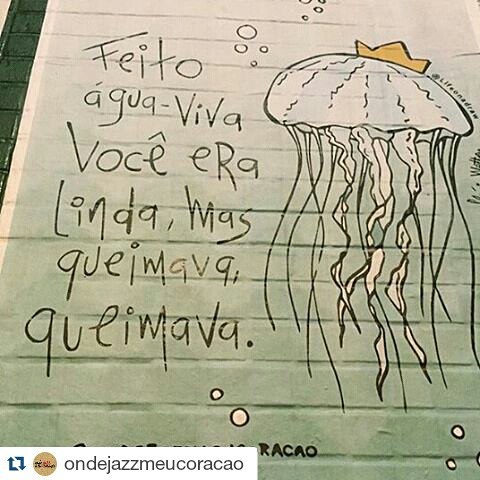 Feito
água-viva
você era
linda, mas
queimava,
queimava.
@lifeonadraw
RACAO
ondejazzmeucoracao